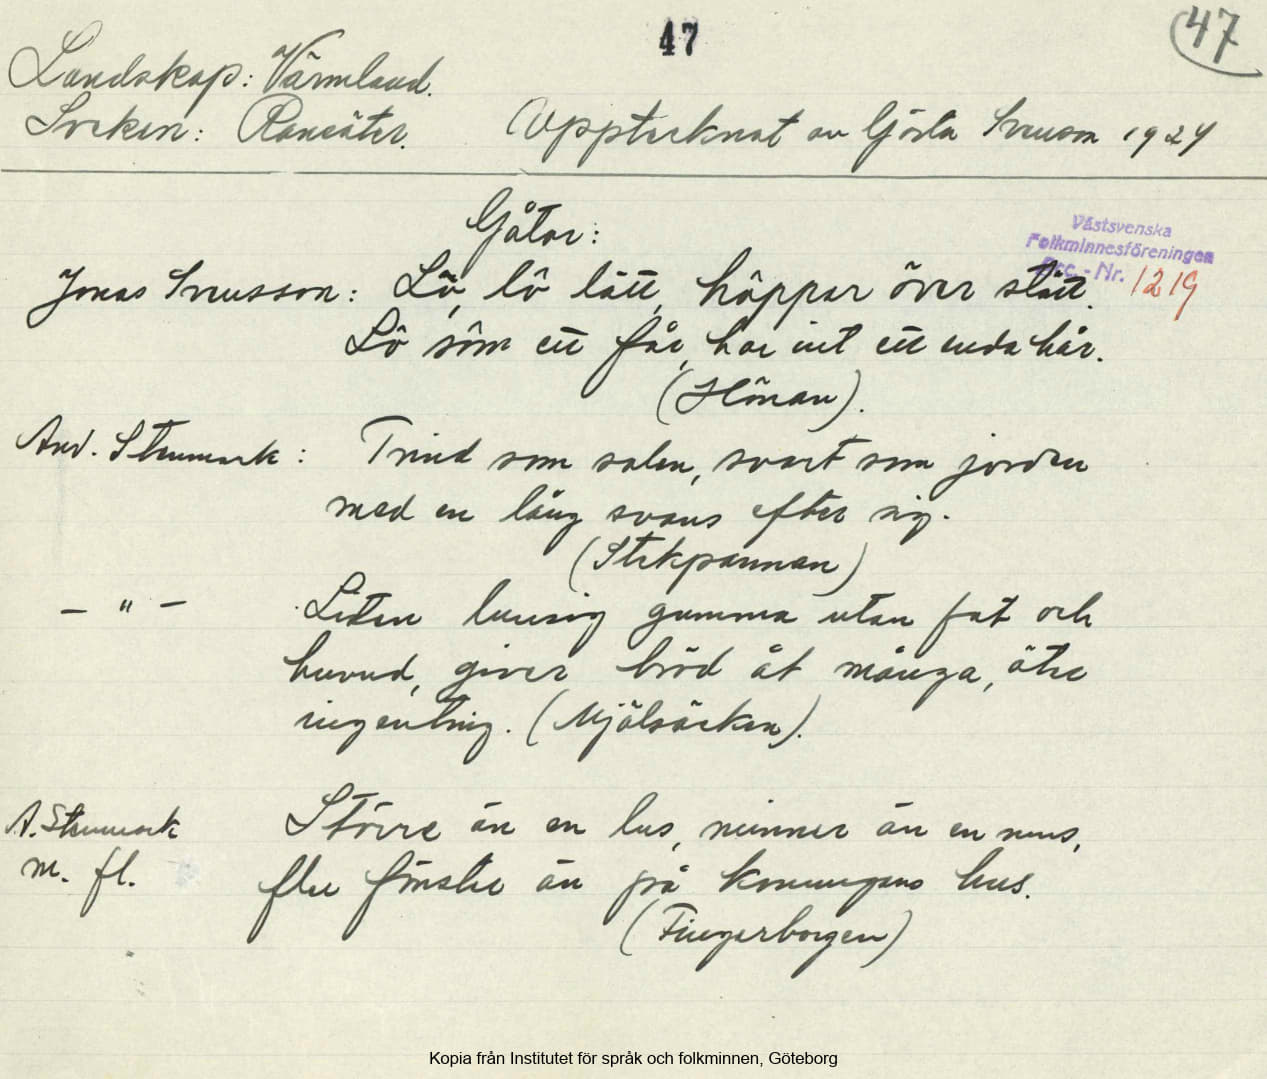 47
47
Landskap: Värmland.
Socken: Ransäter. Upptecknat av Gösta Svenson 1924
Gåtor:
Västsvenska
Folkminnesföreningen
Acc. - Nr. 1219
Jonas Svensson: Lô, lô lätt, hôppar över stätt.
Lô sôm ett får, har int ett enda hår.
(Hönan).
And. Stenmark: Trind som solen, svart som jorden
med en lång svans efter sig.
(Stekpannan)
— " — Liten lurvig gumma utan fot och
huvud, giver bröd åt många, äter
ingenting. (Mjölsäcken).
A. Stenmark Större än en lus, minner än en mus,
m. fl. fler fönster än på konungens hus.
(Fingerborgen)
Kopia från Institutet för språk och folkminnen, Göteborg